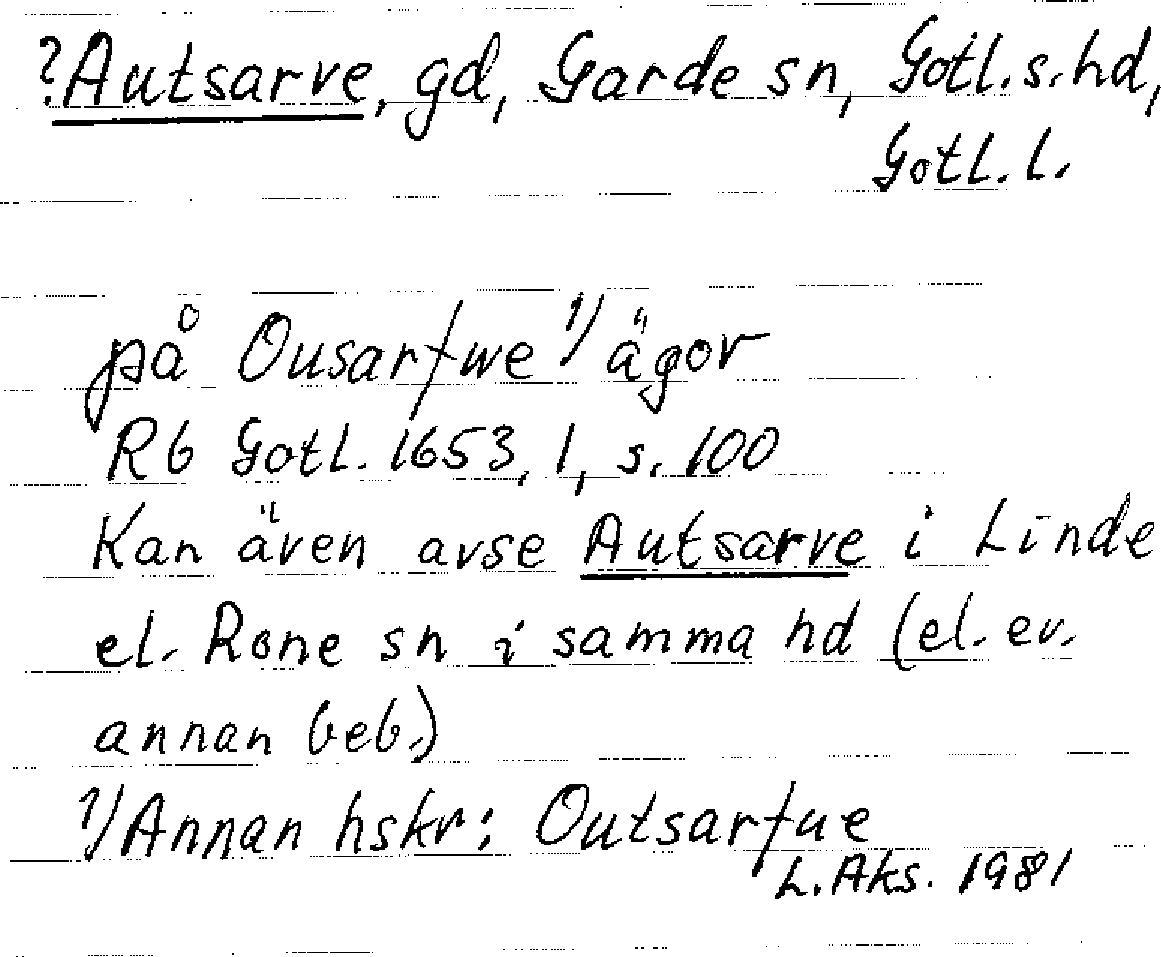 ?Autsarve, gd, Garde sn, Gotl. s. hd,
Gotl. l.
på Ousarfwe 1) ägor
Rb Gotl. 1653, 1, s. 100
Kan även avse Autsarve i Linde
el. Rone sn i samma hd (el. ev.
annan beb.)
1) Annan hskr: Outsarfue
L. Aks. 1981